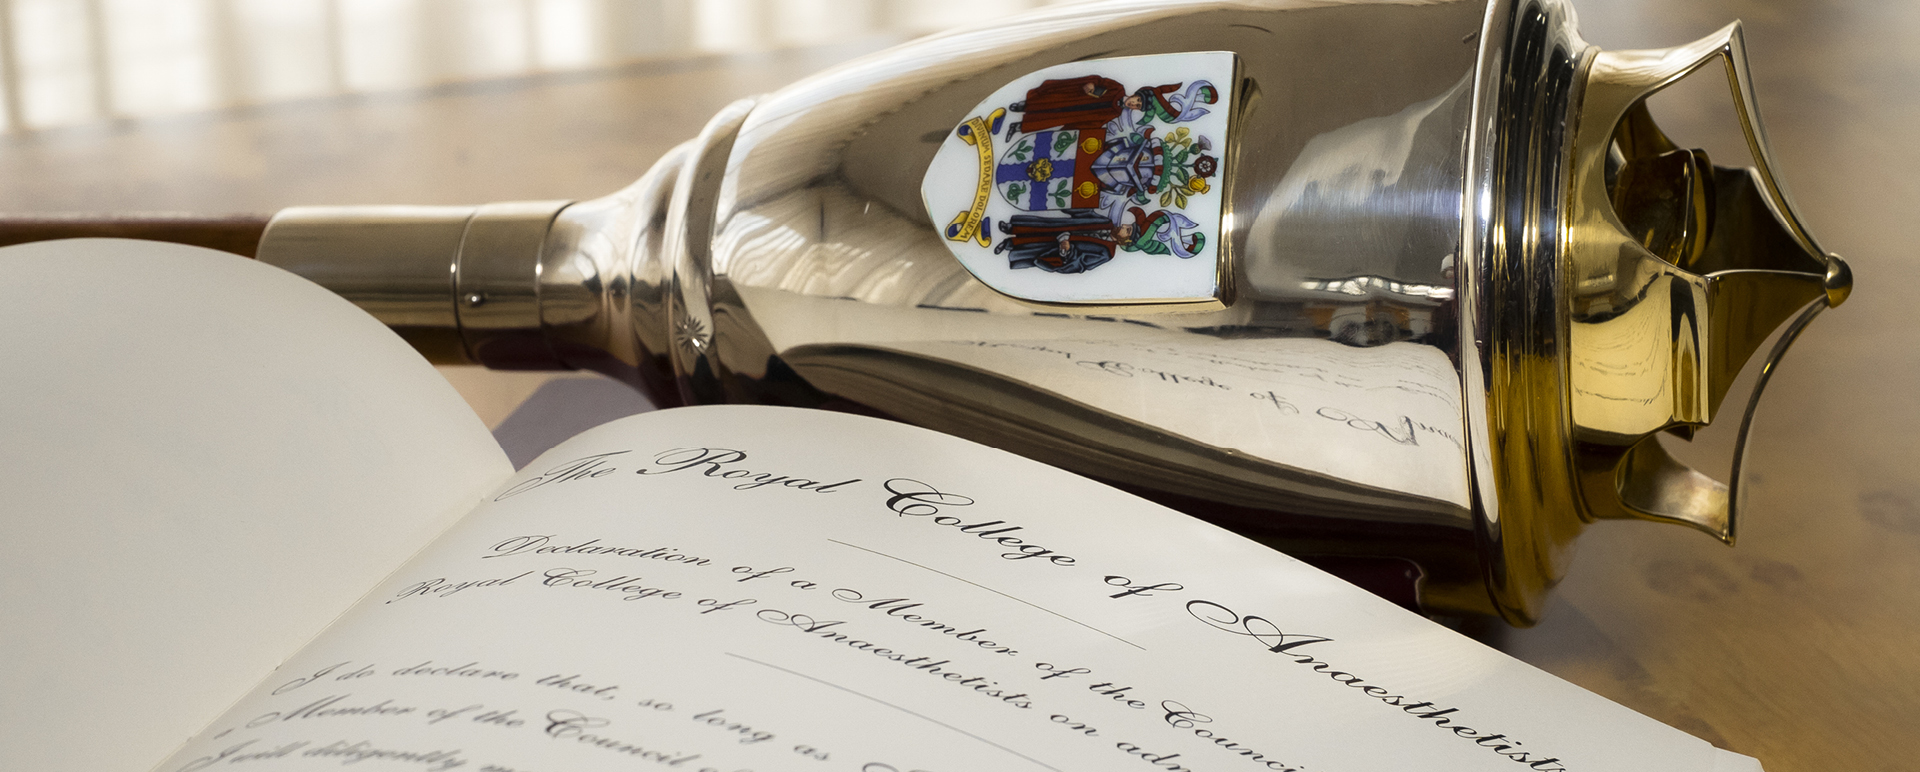 DIVINUM SEDARE DOLOREM
The Royal College of Anaesthetists
Declaration of a Member of the Council
Royal College of Anaesthetists on
I do declare that, so long as
Member of the Council of
I will diligently